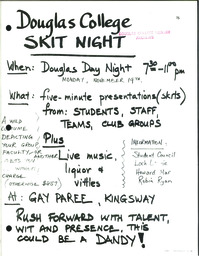 Douglas College
SKIT NIGHT
When: Douglas Day Night 7:30-11:00 pm
MONDAY, NOVEMBER 19TH.
What: five-minute presentations (skits)
from: STUDENTS, STAFF,
TEAMS, CLUB GROUPS
A WILD
COSTUME
DEPICTING
YOUR GROUP,
FACULTY, OR
WITHOUT
CHARGE
(OTHERWISE
Plus
ANOTHER
Live music,
liquor &
vittles
INFORMATION:
Student Council
Howard
Robin Ryan
At: GAY PAREE, KINGSWAY
RUSH FORWARD WITH TALENT,
WIT AND PRESENCE. THIS
COULD BE A DANDY!